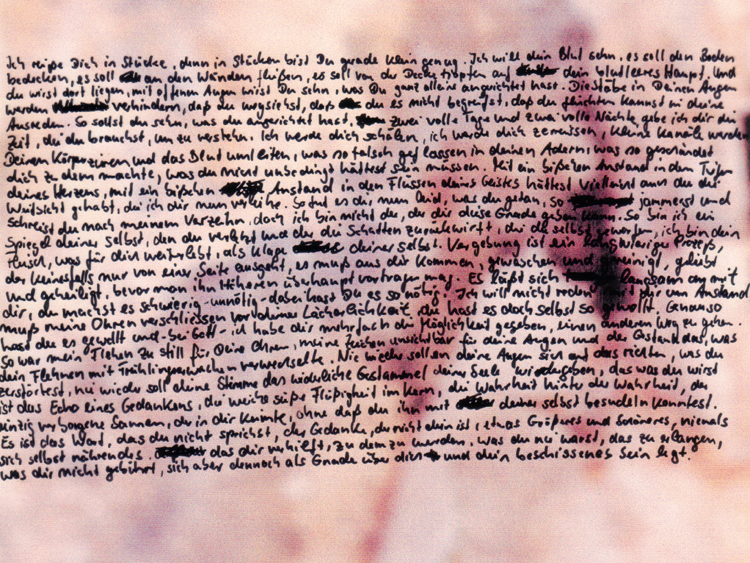 Ich reiße Dich in Stücke, denn in Stücken bist Du gerade klein genug. Ich will dein Blut sehn, es soll den Boden
bedecken, es soll an den Wänden fließen, es soll von der Decke tropfen auf dein blutleeres Haupt, und
du wirst dort liegen, mit offenen Augen wirst Du sehn, was Du ganz alleine angerichtet hast. Die Stäbe in Deinen Augen
werden verhindern, daß du wegsiehst, daß du es nicht begreifst, daß du flüchten kannst in deine
Ausreden. So sollst du sehn, was du angerichtet hast, zwei volle Tage und zwei volle Nächte gebe ich dir die
Zeit, die du brauchst, um zu verstehn. Ich werde dich schälen, ich werde dich zerreissen, kleine Kanäle werden
Deinen Körper zieren und das Blut umleiten, was so falsch geflossen in deinen Adern, was so geschändet
dich zu dem machte, was du nicht unbedingt hättest sein müssen. Mit ein bißchen Anstand in den Tiefen
deines Herzens, mit ein bißchen Anstand in den Flüssen deines Geistes hättest vielleicht auch du die
Weitsicht gehabt, die ich dir nun verleihe. So tut es dir nun leid, was du getan, so jammerst und
schreist du nach meinem Verzeihn, doch ich bin nicht die, die dir diese Gnade geben kann. So bin ich ein
Spiegel deiner selbst, den du verletzt und der die Schatten zurückwirft, die du selbst geworfen, ich bin dein
Fluch, was für dich weiterlebt, als Klage deiner selbst. Vergebung ist ein langwieriger Prozeß,
der keinesfalls nur von einer Seite ausgeht, es muß aus dir kommen, gewaschen und gereinigt, geliebt
und geheiligt, bevor man ihn Höheren überhaupt vortragen mag. Es läßt sich langsam an mit
dir, du machst es schwierig - unnötig - dabei hast Du es so nötig. Ich will nicht reden mit dir von Anstand
muß meine Ohren verschließen vor deiner Lächerlichkeit, du hast es doch selbst so gewollt. Genauso
hast du es gewollt und - bei Gott - ich habe dir mehrfach die Möglichkeit gegeben, einen anderen Weg zu gehen.
So war mein Flehen zu still für Deine Ohren, meine Zeichen unsichtbar für deine Augen und der Gestank das, was
dein Flehmen mit Frühlingserwachen verwechselte. Nie wieder sollen deine Augen sich auf das richten, was du
zerstörtest, nie wieder soll deine Stimme das widerliche Gestammel deiner Seele wiedergeben, das was du wirst
ist das Echo eines Gedankens, die weiche süße Flüßigkeit im Kern, die Wahrheit hinter der Wahrheit, der
einzig verborgene Samen, der in dir keimte, ohne daß du ihn mit deiner selbst besudeln konntest.
Es ist das Wort, das du nicht sprichst, der Gedanke, der nicht dein ist, etwas Größeres und Schöneres, niemals
sich selbst nährendes. das dir verhielt, zu dem zu werden, was du nie warst, das zu erlangen,
was dir nicht gebührt, sich aber dennoch als Gnade über dich und dein beschissenes Sein legt.